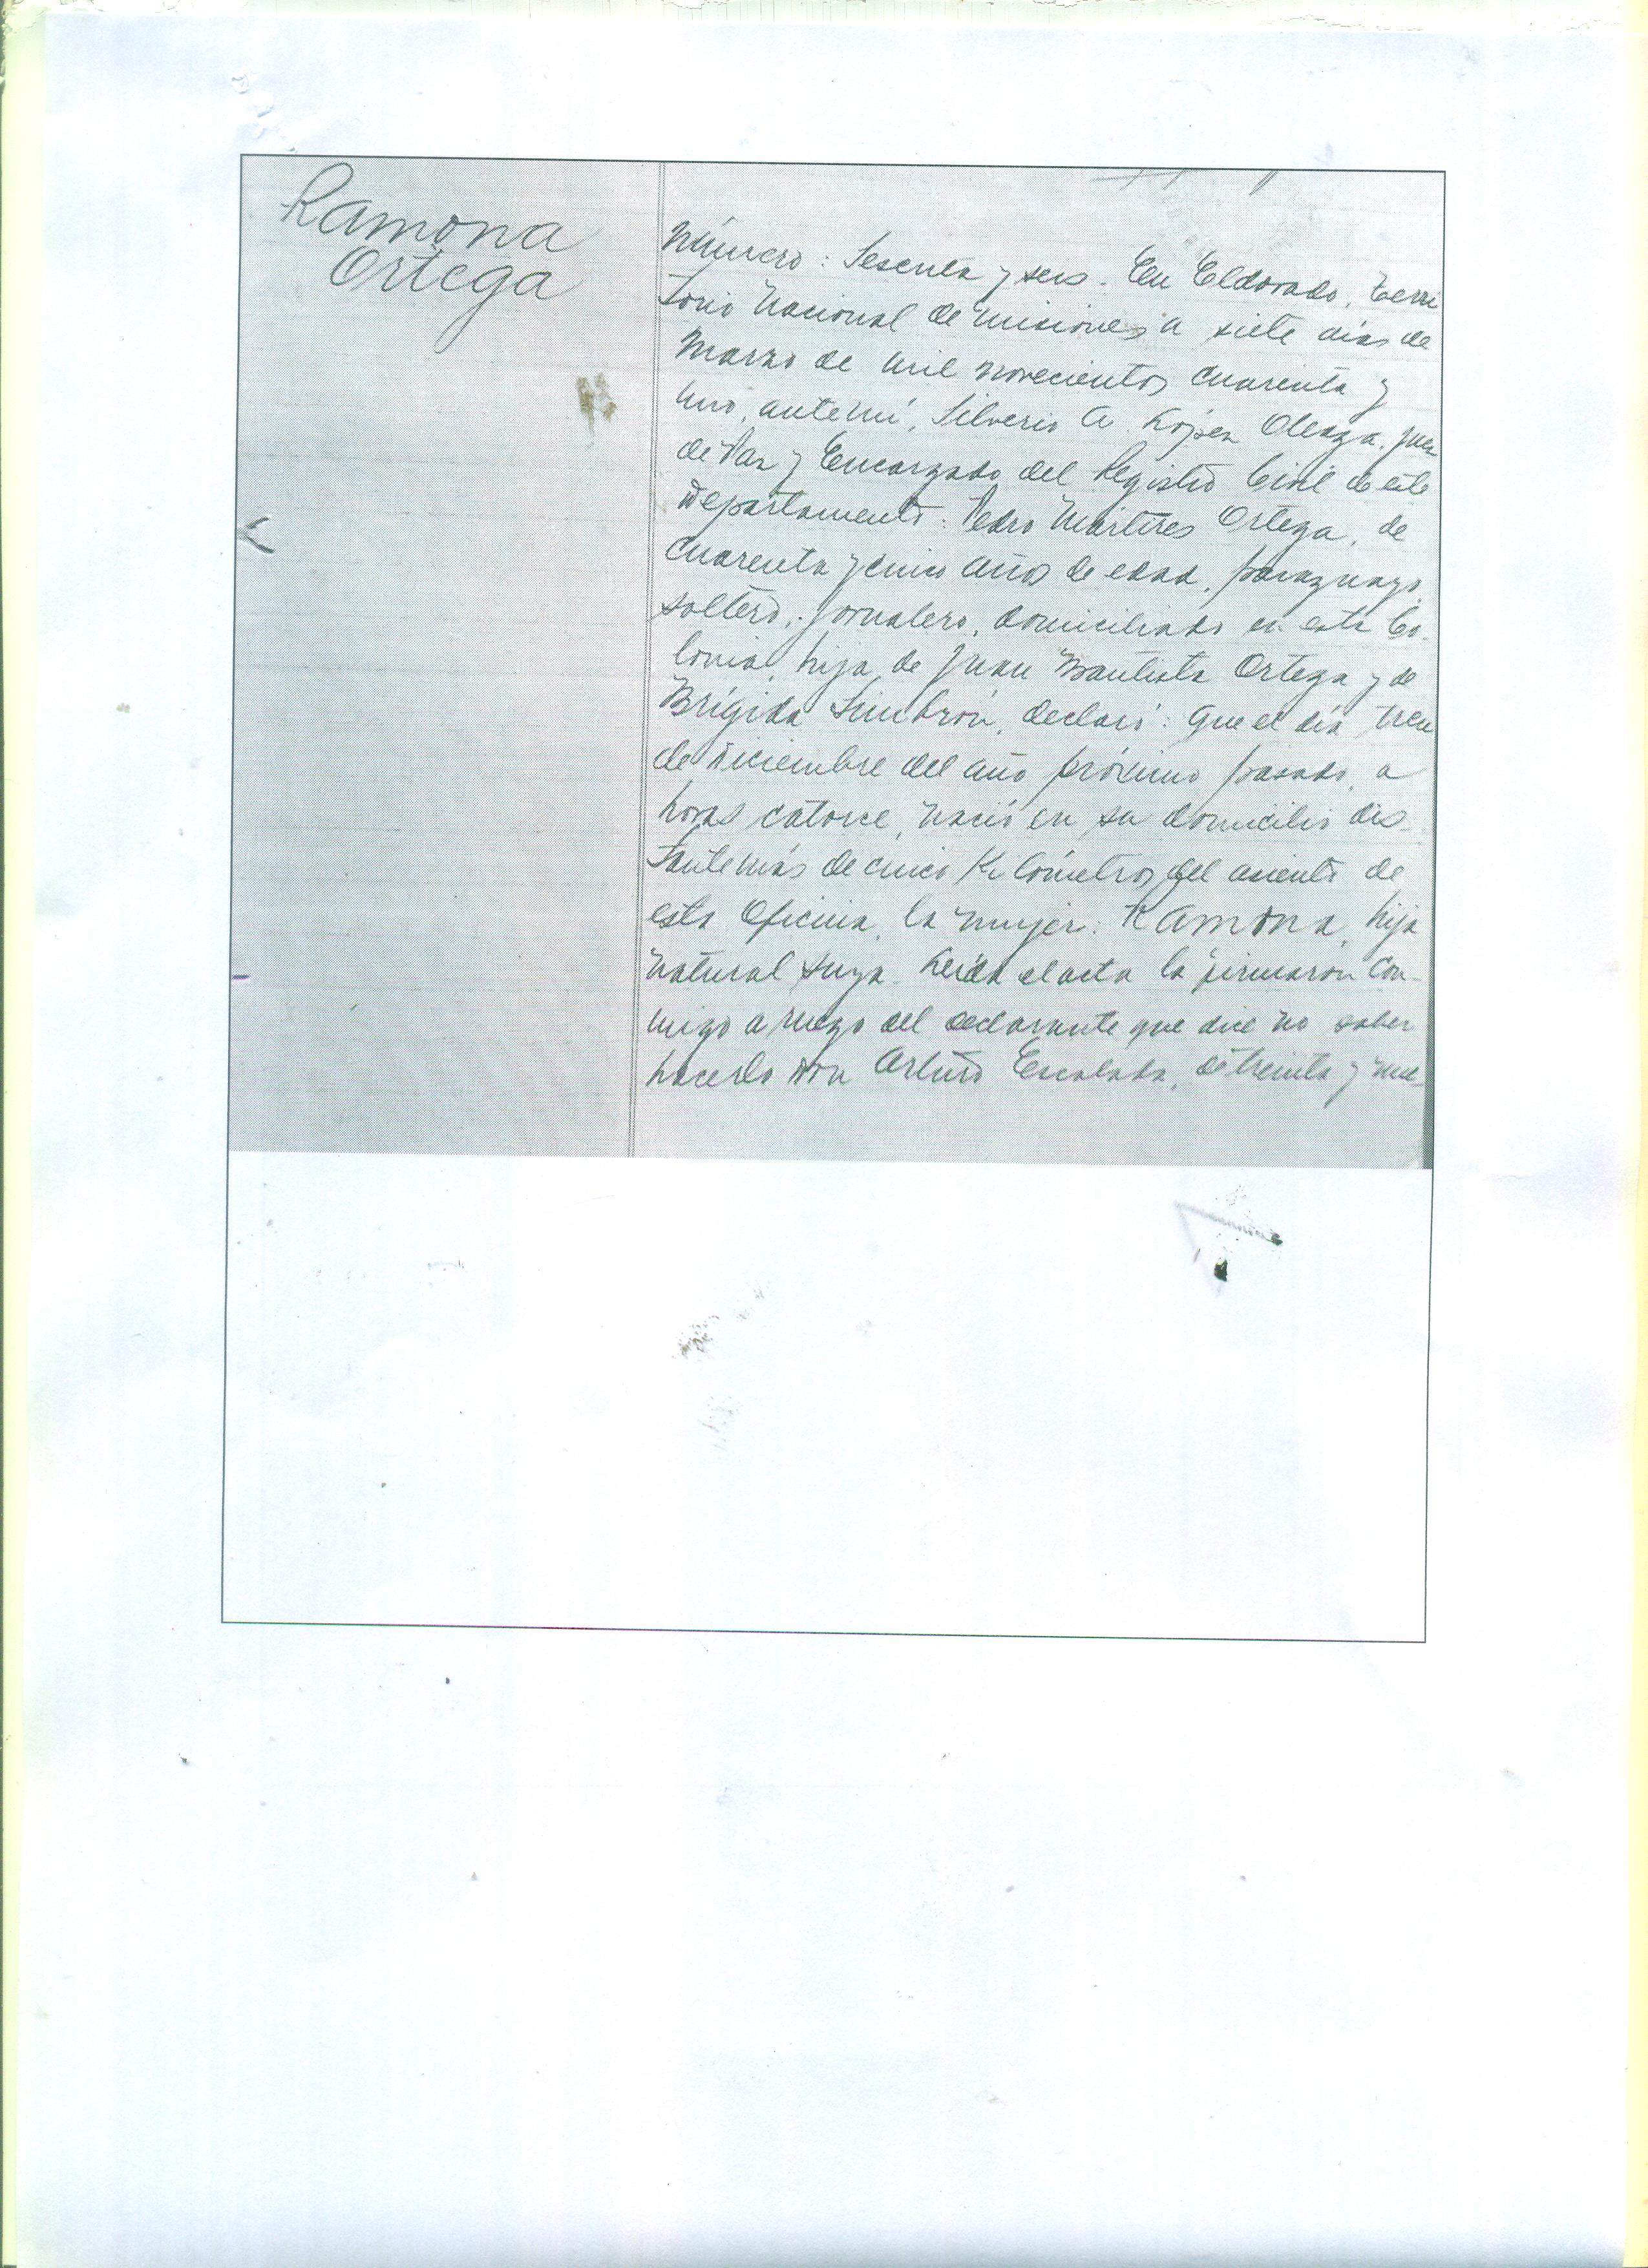 Ramona
Ortega
Número: Sesenta y seis. En Eldorado, Terri
torio Nacional de Misiones a siete días de
Marzo de mil novecientos cuarenta y
uno, ante mí, Silverio A. López Oleaga, Juez
de Paz y Encargado del Registro Civil de este
Departamento: Pedro Martires Ortega, de
cuarenta y cinco años de edad, paraguayo,
soltero, jornalero, domiciliado en esta Co-
lonia, hija de Juan Bautista Ortega y de
Brígida Limbrón, declaró: Que el día trece
de Diciembre del año próximo pasado, a
horas catorce, nació en su domicilio dis-
tante más de cinco Kilómetros del asiento de
esta Oficina, la mujer: Ramona, hija
natural suya. Leída el acta la firmaron con-
migo a ruego del declarante que dice no saber
hacerlo don Arturo Escalada, de treinta y nue-